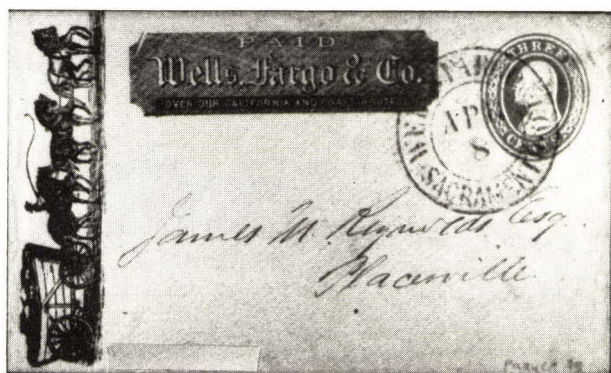 PAID
Wells, Fargo & Co.
OVER OUR CALIFORNIA AND COAST ROUTES
THREE
AP
8
SACRAMENTO
James M. Reynolds Esq
Placerville